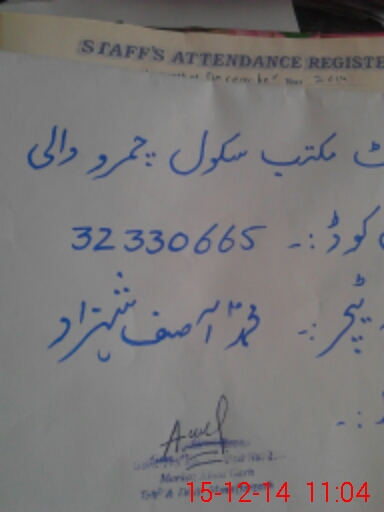 STAFF'S ATTENDANCE REGISTE
December 2014
ٹ مکتب سکول چمرو والی
کوڈ :۔ 32330665
ٹیچر :۔ محمد آصف شہزاد
:۔
15-12-14 11:04